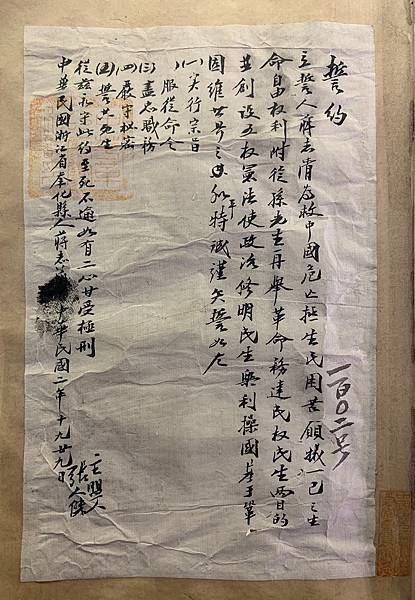 誓約
立誓人蔣志清為救中國危亡拯生民困苦願犧一己之生
命自由權利附從孫先生再舉革命務達民權民生兩目的
並創設五權憲法使政治修明民生樂利措國基于鞏
固維世界之和平特誠謹矢誓如左
(一)实行宗旨
(二)服從命令
(三)盡忠職務
(四)嚴守秘密
(五)誓共死生
從茲永守此約至死不渝如有二心甘受極刑
中華民國浙江省奉化縣人蔣志
中華民國二年十月廿九日
主盟人
張人傑
一百〇二号